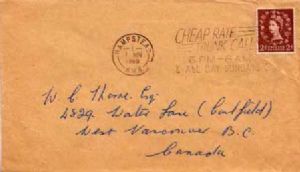 HAMPSTEAD
N.W.3
CHEAP RATE
TRUNK CALLS
6 PM - 6 AM
& ALL DAY SUNDAYS
W C Thorne. Esq
4829. Water Lane (Caulfield)
West Vancouver B.C.
Canada